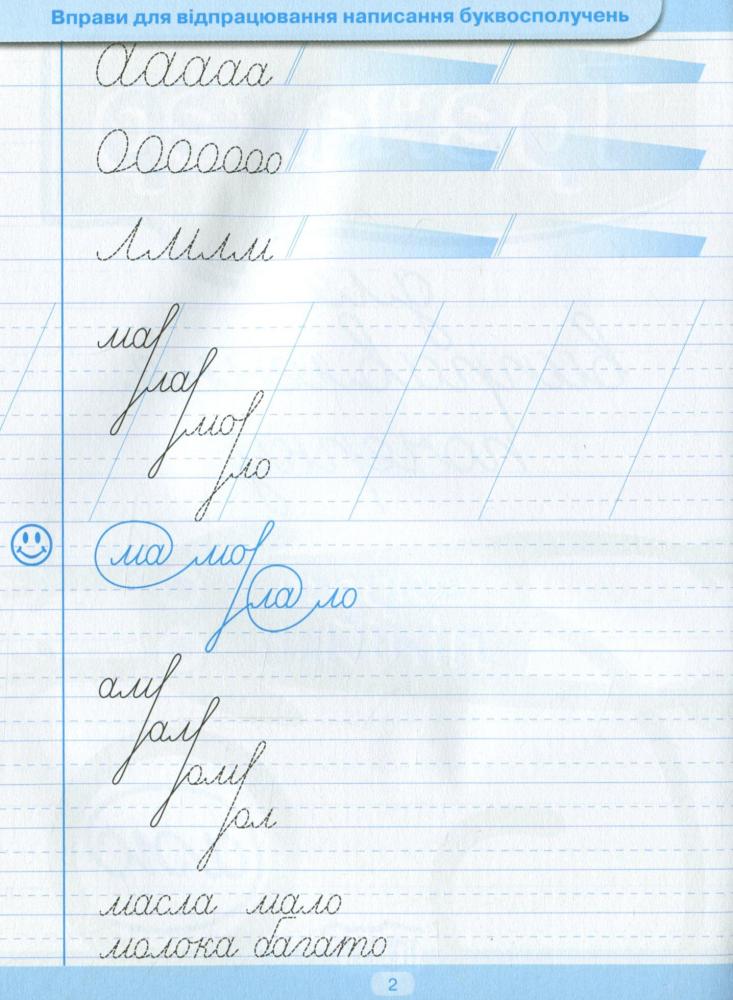 Вправи для відпрацювання написання буквосполучень
а а а а а а
О О О О О о о о
л м л л м
ма
ла
мо
ло
ма мо
ла ло
ам
ал
ом
ол
масла мало
молока багато
2